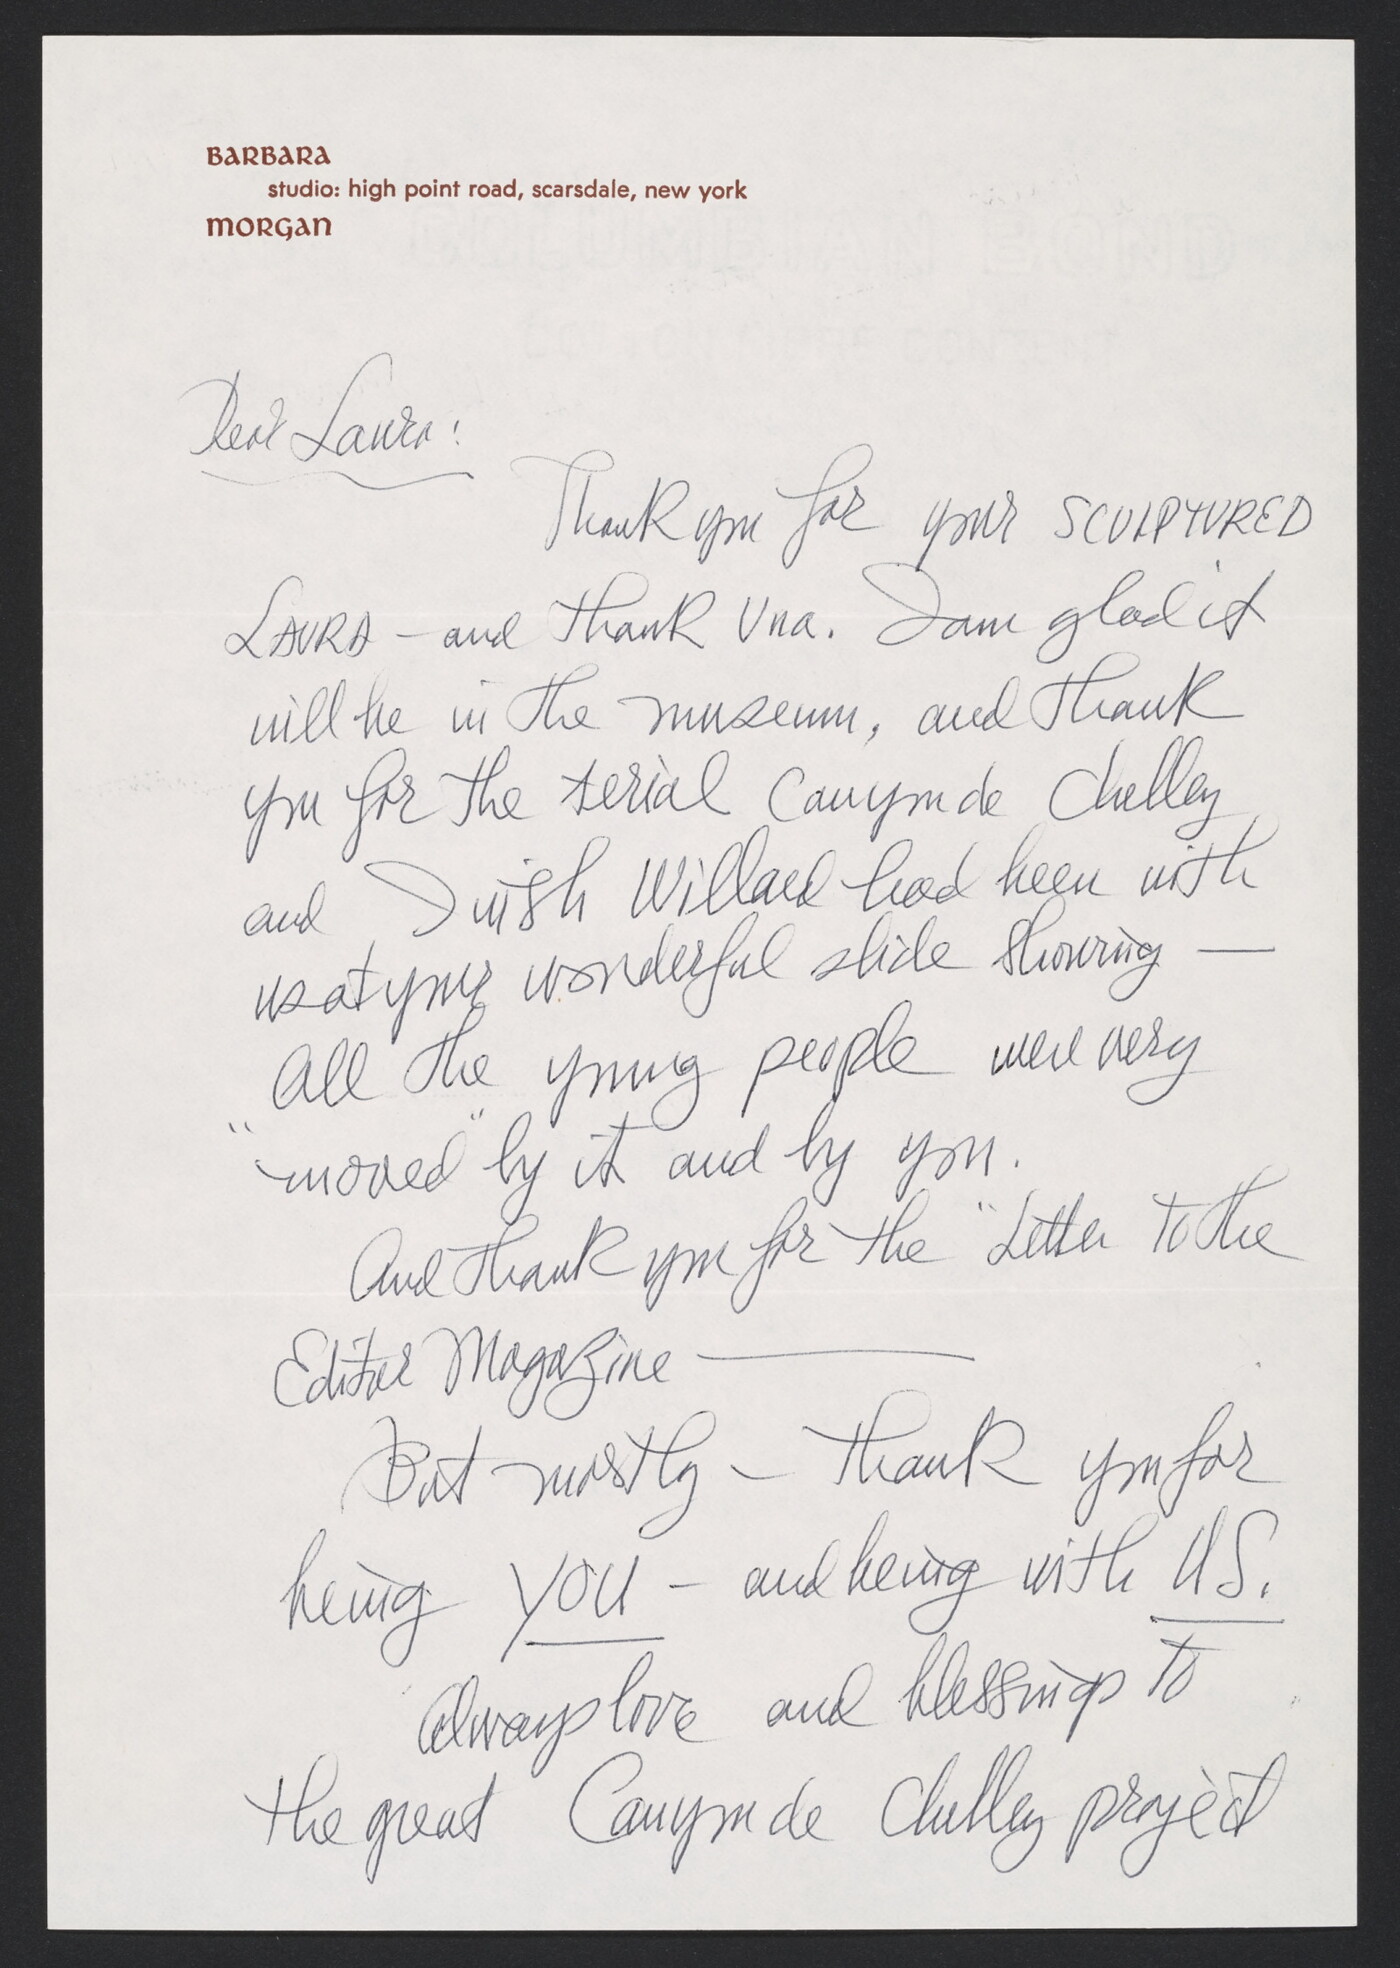 BARBARA
studio: high point road, scarsdale, new york
MORGAN
Dear Laura:
Thank you for your SCULPTURED
LAURA – and thank Una. I am glad it
will be in the museum, and thank
you for the serial Canyon de Chelley
and I wish Willard had been with
us at your wonderful slide showing —
All the young people were very
"moved" by it and by you.
And thank you for the "Letter to the
Editor Magazine —
But mostly – thank you for
being YOU – and being with US.
Always love and blessings to
the great Canyon de Chelley project